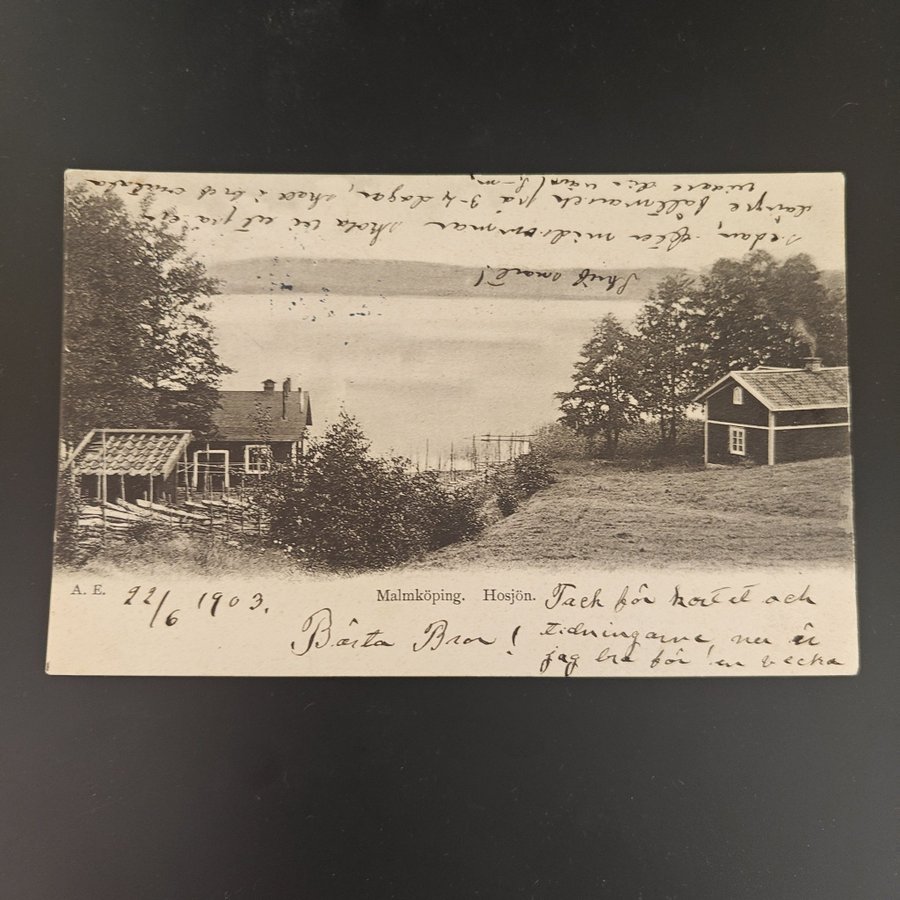 A. E. 22/6 1903. Malmköping. Hosjön. Tack för kortet och
Bästa Bror! tidningarne, nu är
jag bra för en vecka
sedan, efter midsommar skola vi ut på en
fältmarsch på 3-4 dagar, skall i bref
vidare
Skrif snart!